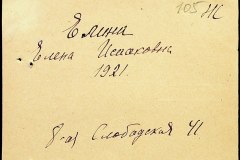 105 Ж
Елина
Елена Исааковна
1921.
8-ая Слободская 41